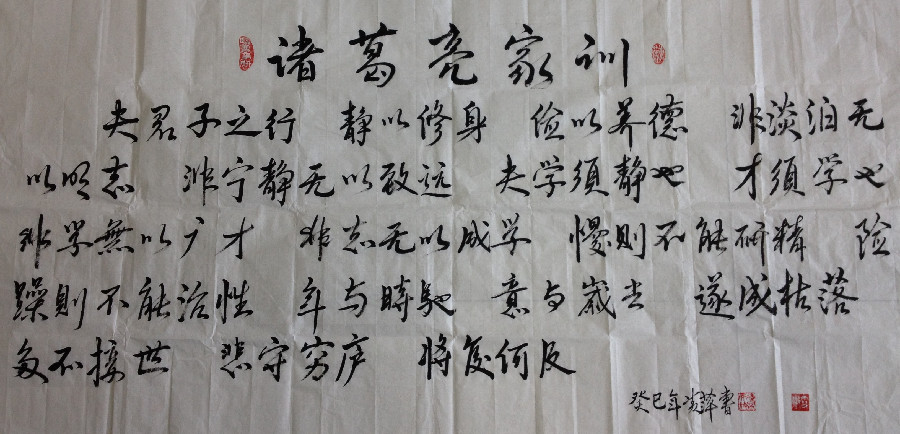 诸葛亮家训
夫君子之行 静以修身 俭以养德 非淡泊无
以明志 非宁静无以致远 夫学须静也 才须学也
非学無以广才 非志无以成学 慢则不能研精 险
躁则不能治性 年与時驰 意与歲去 遂成枯落
多不接世 悲守穷庐 将复何及
癸巳年